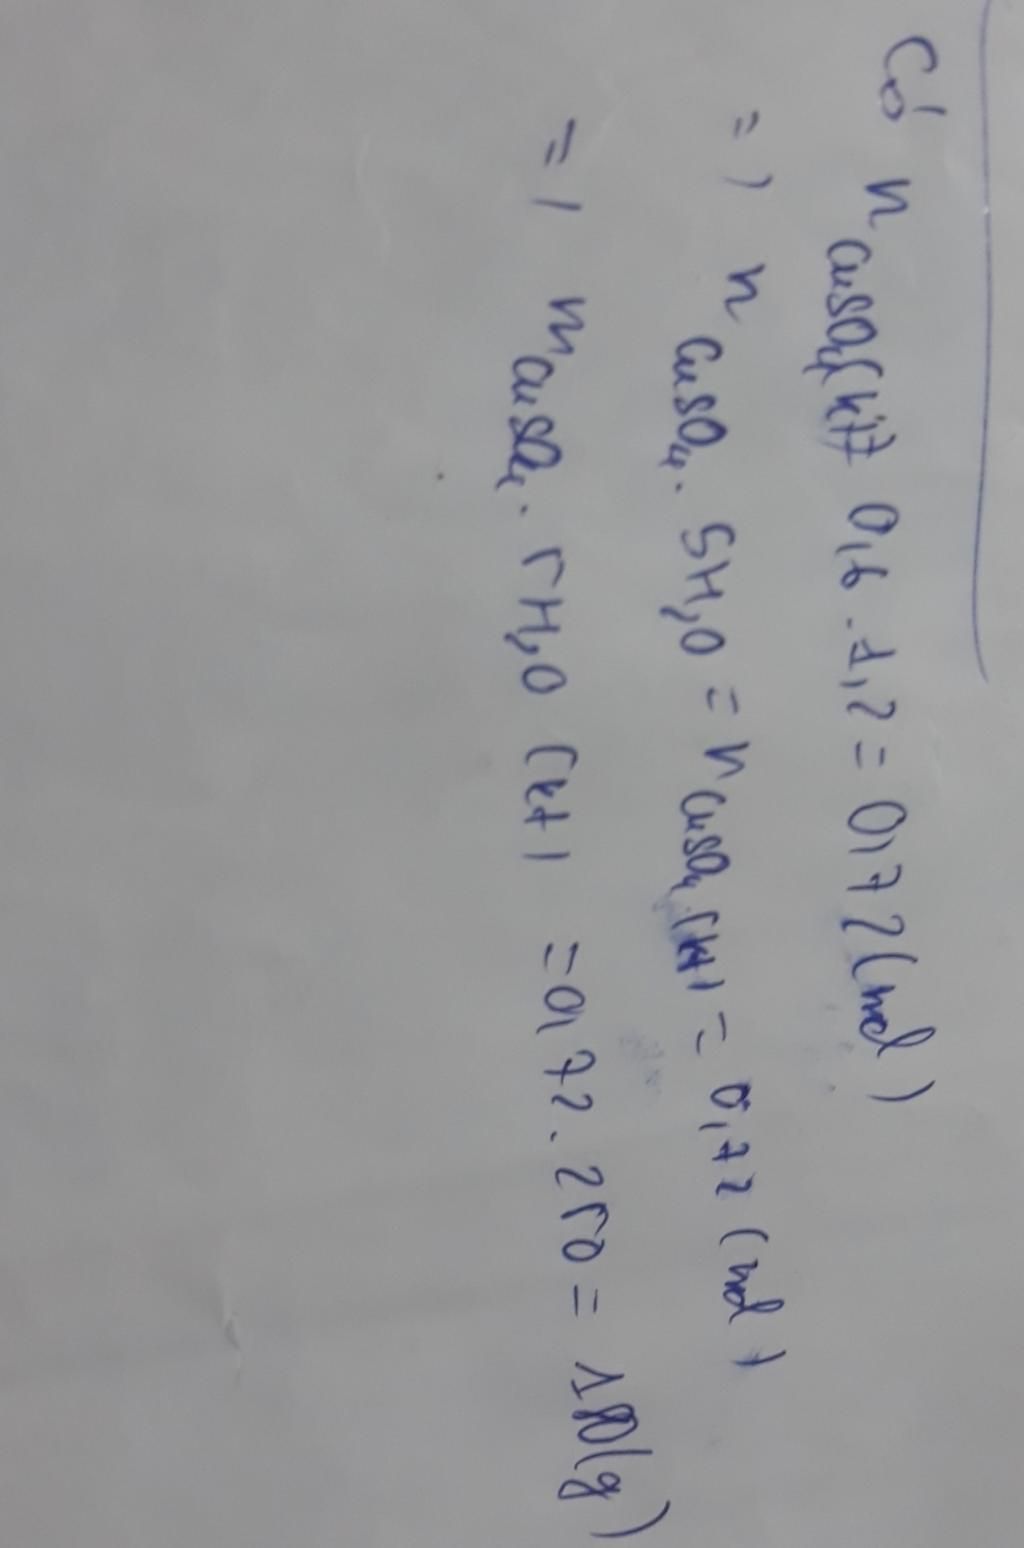 Có n CuSO₄(kt) 0,6 . 1,2 = 0,72 (mol)
=) n CuSO₄ . 5H₂O = n CuSO₄ (kt) = 0,72 (mol)
=) m CuSO₄ . 5H₂O (kt) = 0,72 . 250 = 180 (g)